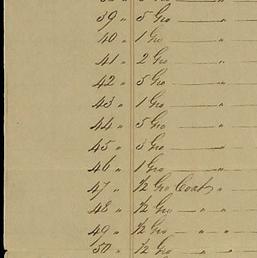 39 " 5 Gro — "
40 " 1 Gro — "
41 " 2 Gro — "
42 " 5 Gro — "
43 " 1 Gro — "
44 " 5 Gro — "
45 " 3 Gro — "
46 " 1 Gro — "
47 " ½ Gro Coat "
48 " ½ Gro — " — "
49 " ½ Gro — " — "
50 " ½ Gro — " — "